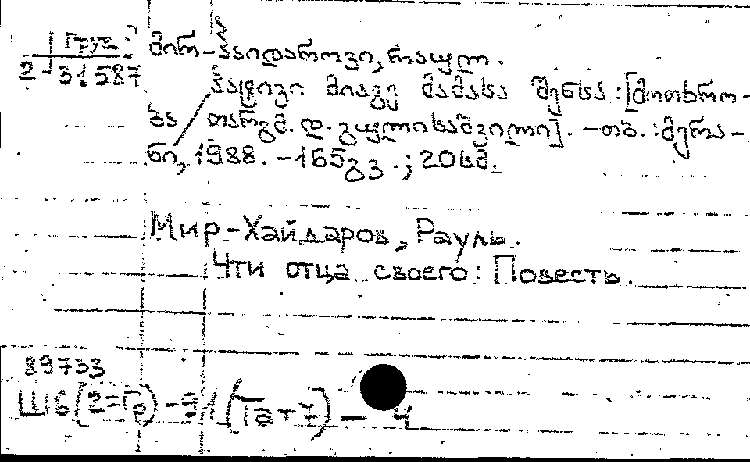 Груз.
2-31587
მირ-ჰაიდაროვი, რაულ.
პატივი მიაგე მამასა შენსა: [მოთხრო-
ბა თარგმ. დ. გულისაშვილი]. -თბ.: მერა-
ნი, 1988. -165გვ.; 20სმ.
Мир-Хайдаров, Рауль.
Чти отца своего: Повесть.
89733
Ш6(2=Гр)-31(Тат7)-4